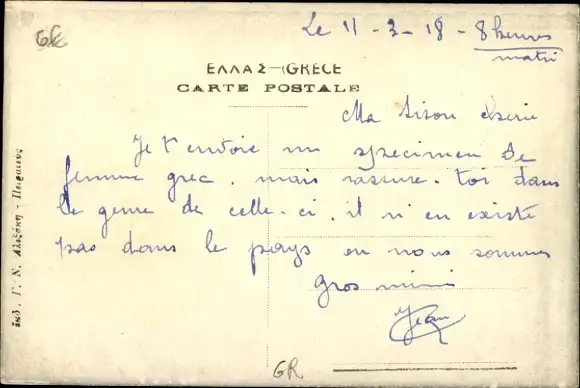 GR
Le 11-3-18 - 8 heures
matin
ΕΛΛΑΣ-GRÈCE
CARTE POSTALE
Ma chérie
Je t'envoie un specimen de
femme grec. mais rassure-toi dans
le genre de celle-ci, il n'en existe
pas dans le pays ou nous sommes
Gros mimi
Jean
GR
ἐκδ. Γ. Ν. Ἀλεξάκη - Πειραιεύς